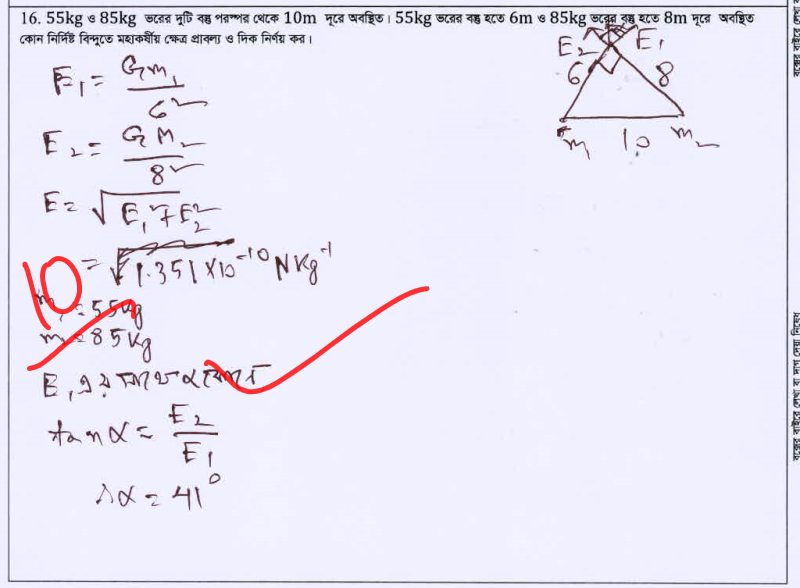 16. 55kg ও 85kg ভরের দুটি বস্তু পরস্পর থেকে 10m দূরে অবস্থিত। 55kg ভরের বস্তু হতে 6m ও 85kg ভরের বস্তু হতে 8m দূরে অবস্থিত
কোন নির্দিষ্ট বিন্দুতে মহাকর্ষীয় ক্ষেত্র প্রাবল্য ও দিক নির্ণয় কর।
E₂ E₁
6 8
m 10 m₂
E₁ = Gm₁/6²
E₂ = GM₂/8²
E = √E₁² + E₂²
= 1.351 × 10⁻¹⁰ N kg⁻¹
10
m₁ = 55kg
m = 85kg
E₁ এর সাথে α কোণে
tan α = E₂/E₁
∴ α = 41°